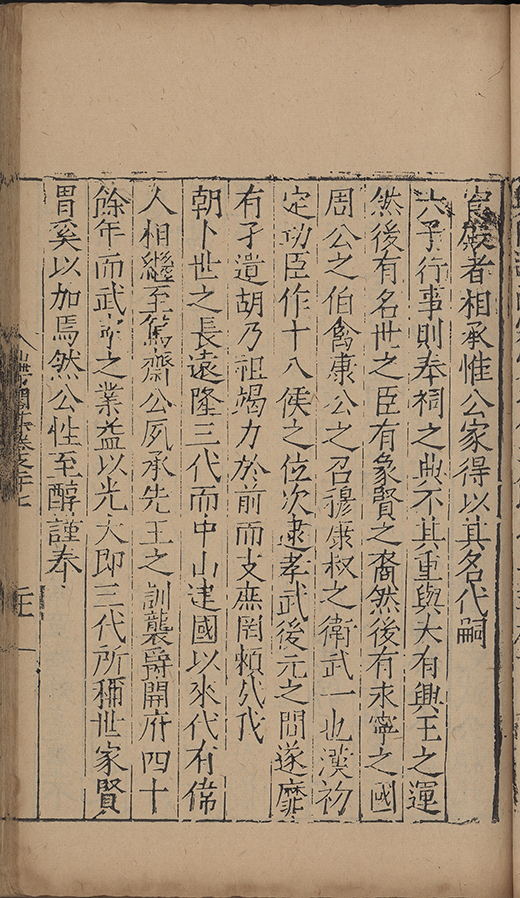 官啟者相承惟公家得以其名代嗣
六予行事則奉祠之典不其重與大有興王之運
然後有名世之臣有象賢之裔然後有永寧之國
周公之伯禽康公之召穆康叔之衛武一也漢初
定功臣作十八侯之位次逮孝武後元之間遂靡
有孑遺胡乃祖竭力於前而支庶罔賴
朝卜世之長遠隆三代而中山建國以來代有偉
人相繼至篤齋公夙承先王之訓襲爵開府四十
餘年而武之業益以光大即三代所稱世家賢
胄奚以加焉然公性至醇謹奉